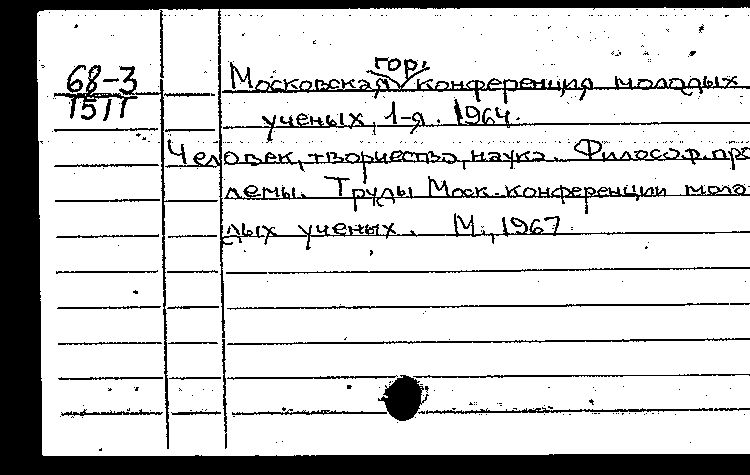 68-3
1511
гор.
Московская конференция молодых
ученых, 1-я. 1964.
Человек, творчество, наука. Философ. про
лемы. Труды Моск. конференции моло-
дых ученых. М., 1967